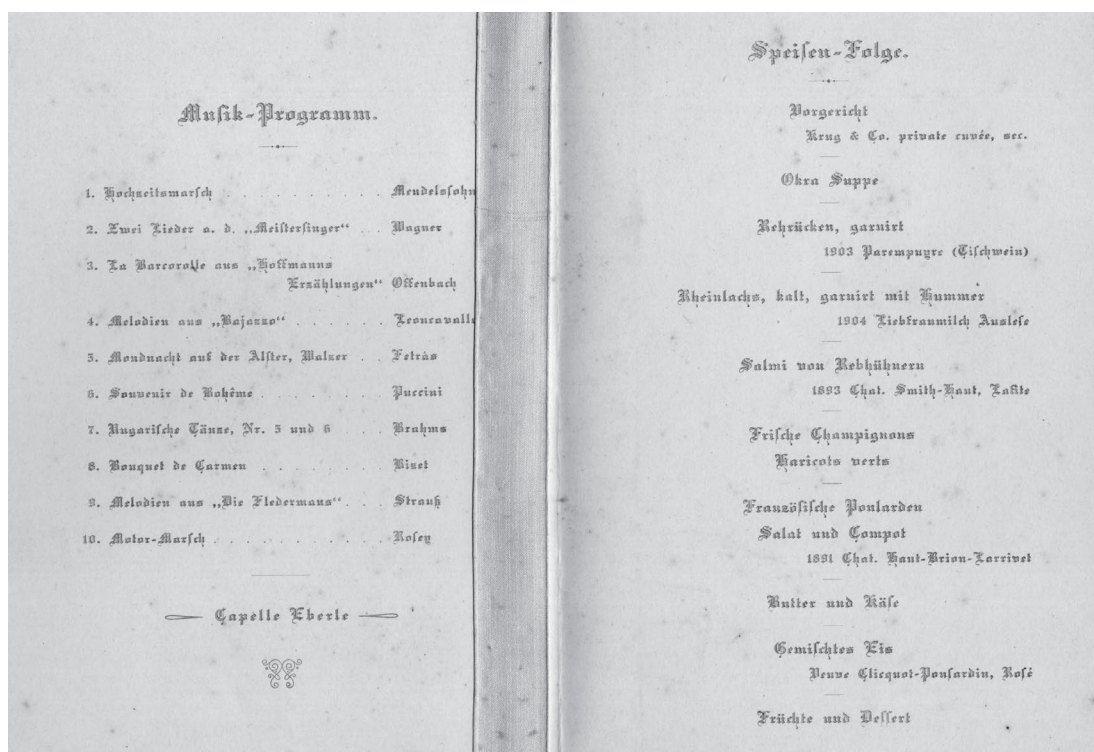 Musik-Programm.
1. Hochzeitsmarsch . . . . . . . . . Mendelssohn
2. Zwei Lieder a. d. „Meistersinger“ . . . Wagner
3. La Barcorolle aus „Hoffmanns
Erzählungen“ Offenbach
4. Melodien aus „Bajazzo“ . . . . . . Leoncavallo
5. Mondnacht auf der Alster, Walzer . . Fetrás
6. Souvenir de Bohême . . . . . . . . Puccini
7. Ungarische Tänze, Nr. 5 und 6 . . . Brahms
8. Bouquet de Carmen . . . . . . . . Bizet
9. Melodien aus „Die Fledermaus“ . . . Strauß
10. Motor-Marsch . . . . . . . . . . . Rosey
Capelle Eberle
Speisen-Folge.
Vorgericht
Krug & Co. private cuvée, sec.
Okra Suppe
Rehrücken, garnirt
1903 Parempuyre (Tischwein)
Rheinlachs, kalt, garnirt mit Hummer
1904 Liebfraumilch Auslese
Salmi von Rebhühnern
1893 Chat. Smith-Haut, Lafite
Frische Champignons
Haricots verts
Französische Poularden
Salat und Compot
1891 Chat. Haut-Brion-Larrivet
Butter und Käse
Gemischtes Eis
Veuve Clicquot-Ponsardin, Rosé
Früchte und Dessert